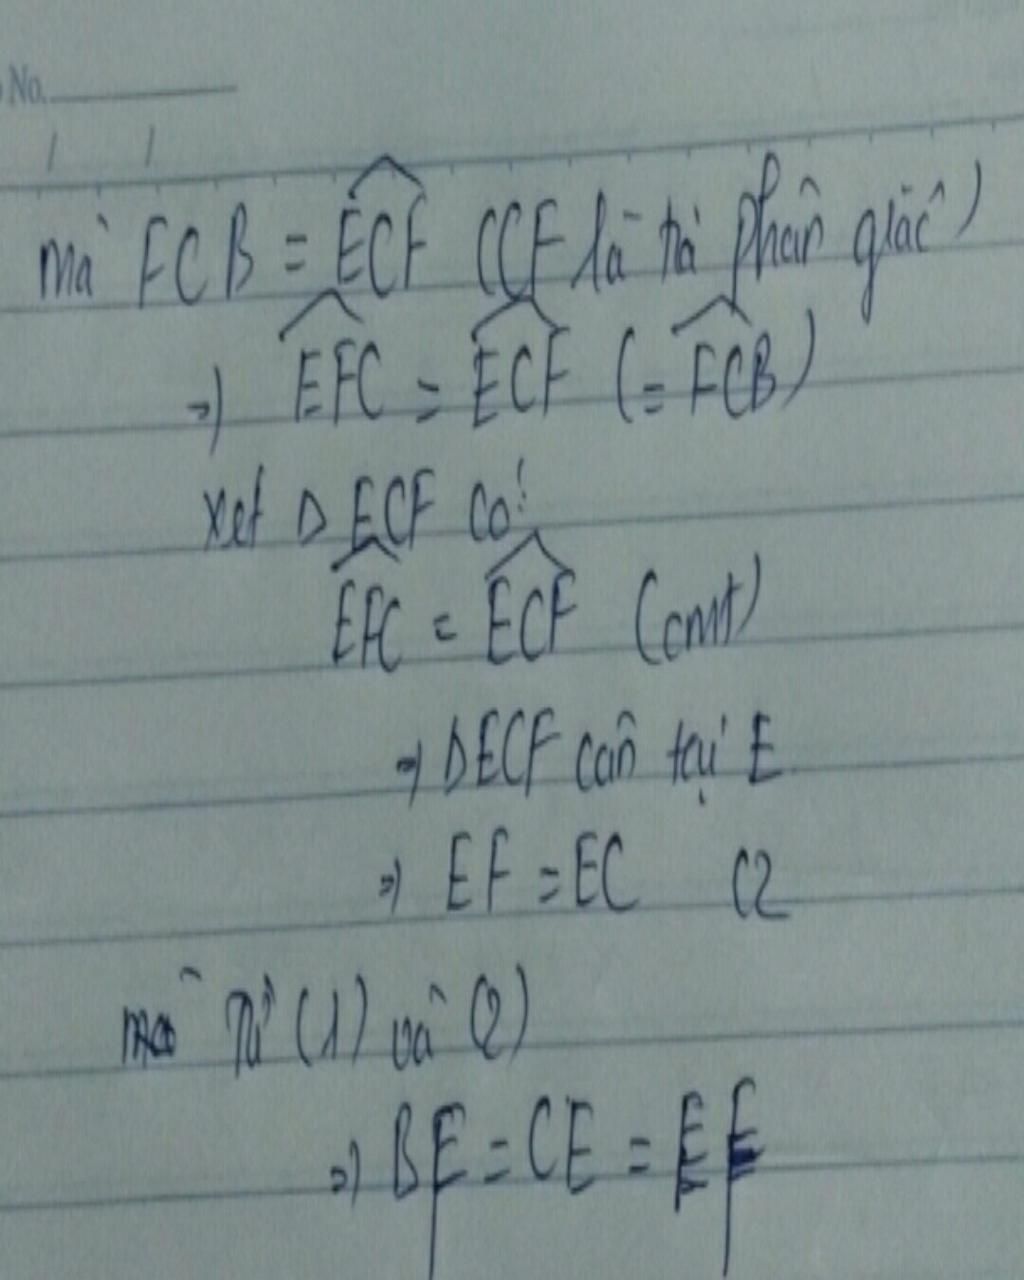 No.
mà FCB = ECF (CF là tia phân giác)
=> EFC = ECF (= FCB)
xét Δ ECF có:
EFC = ECF (cmt)
=> ΔECF cân tại E
=> EF = EC (2
Từ (1) và (2)
=> BF = CE = EF